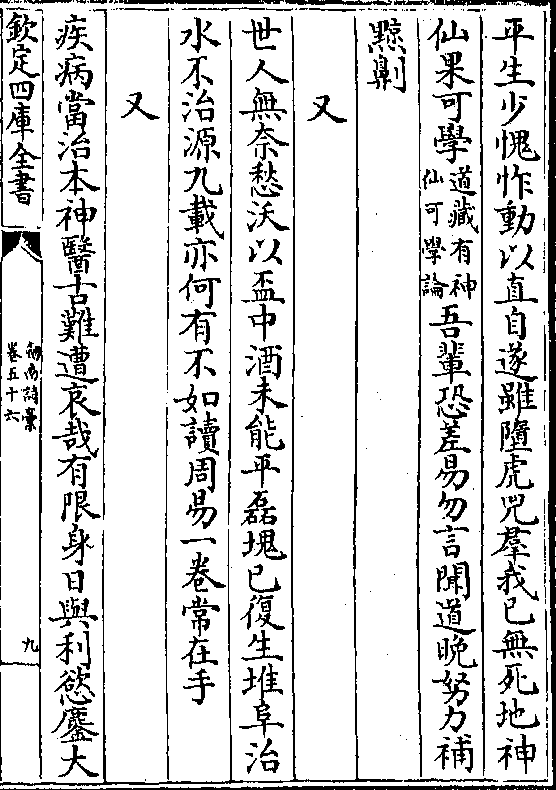 平生少愧怍動以直自遂雖墮虎兕羣我已無死地神
仙果可學道藏有神仙可學論吾輩恐差易勿言聞道晚努力補
黥劓
又
世人無奈愁沃以盃中酒未能平磊塊已復生堆阜治
水不治源九載亦何有不如讀周易一卷常在手
又
疾病當治本神醫古難遭哀哉有限身日與利慾鏖大
欽定四庫全書
劒南詩稾
卷五十六
九